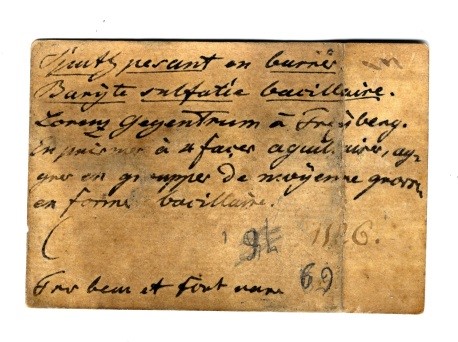 Spath pesant en barres
Baryte sulfatée bacillaire.
Lorenz Gegentrum à Freyberg.
en prismes à 4 faces aguillaires, ag-
gres en grouppes de moyenne grosse
en forme bacillaire.
1826.
69
Tres beau et fort rare